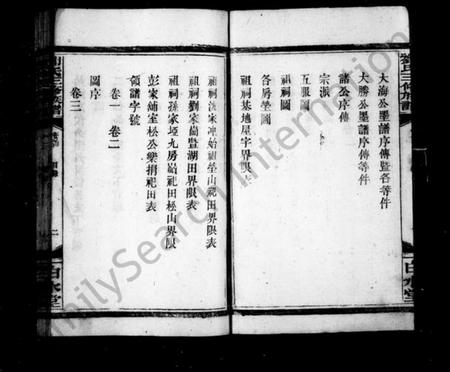 大海公墨譜序傳暨各等件
大勝公墨譜序傳等件
諸公序傳
宗派
五服圖
祖祠圖
各房墳圖
祖祠基地屋宇界限表
祖祠沈家冲始祖塋山祀田界限表
祖祠劉家崗暨湖田界限表
祖祠孫家埡九房嶺祀田松山界限
彭家舖室松公樂捐祀田表
領譜字號
卷一 卷二
圖序
卷三
白水堂
FamilySearch International